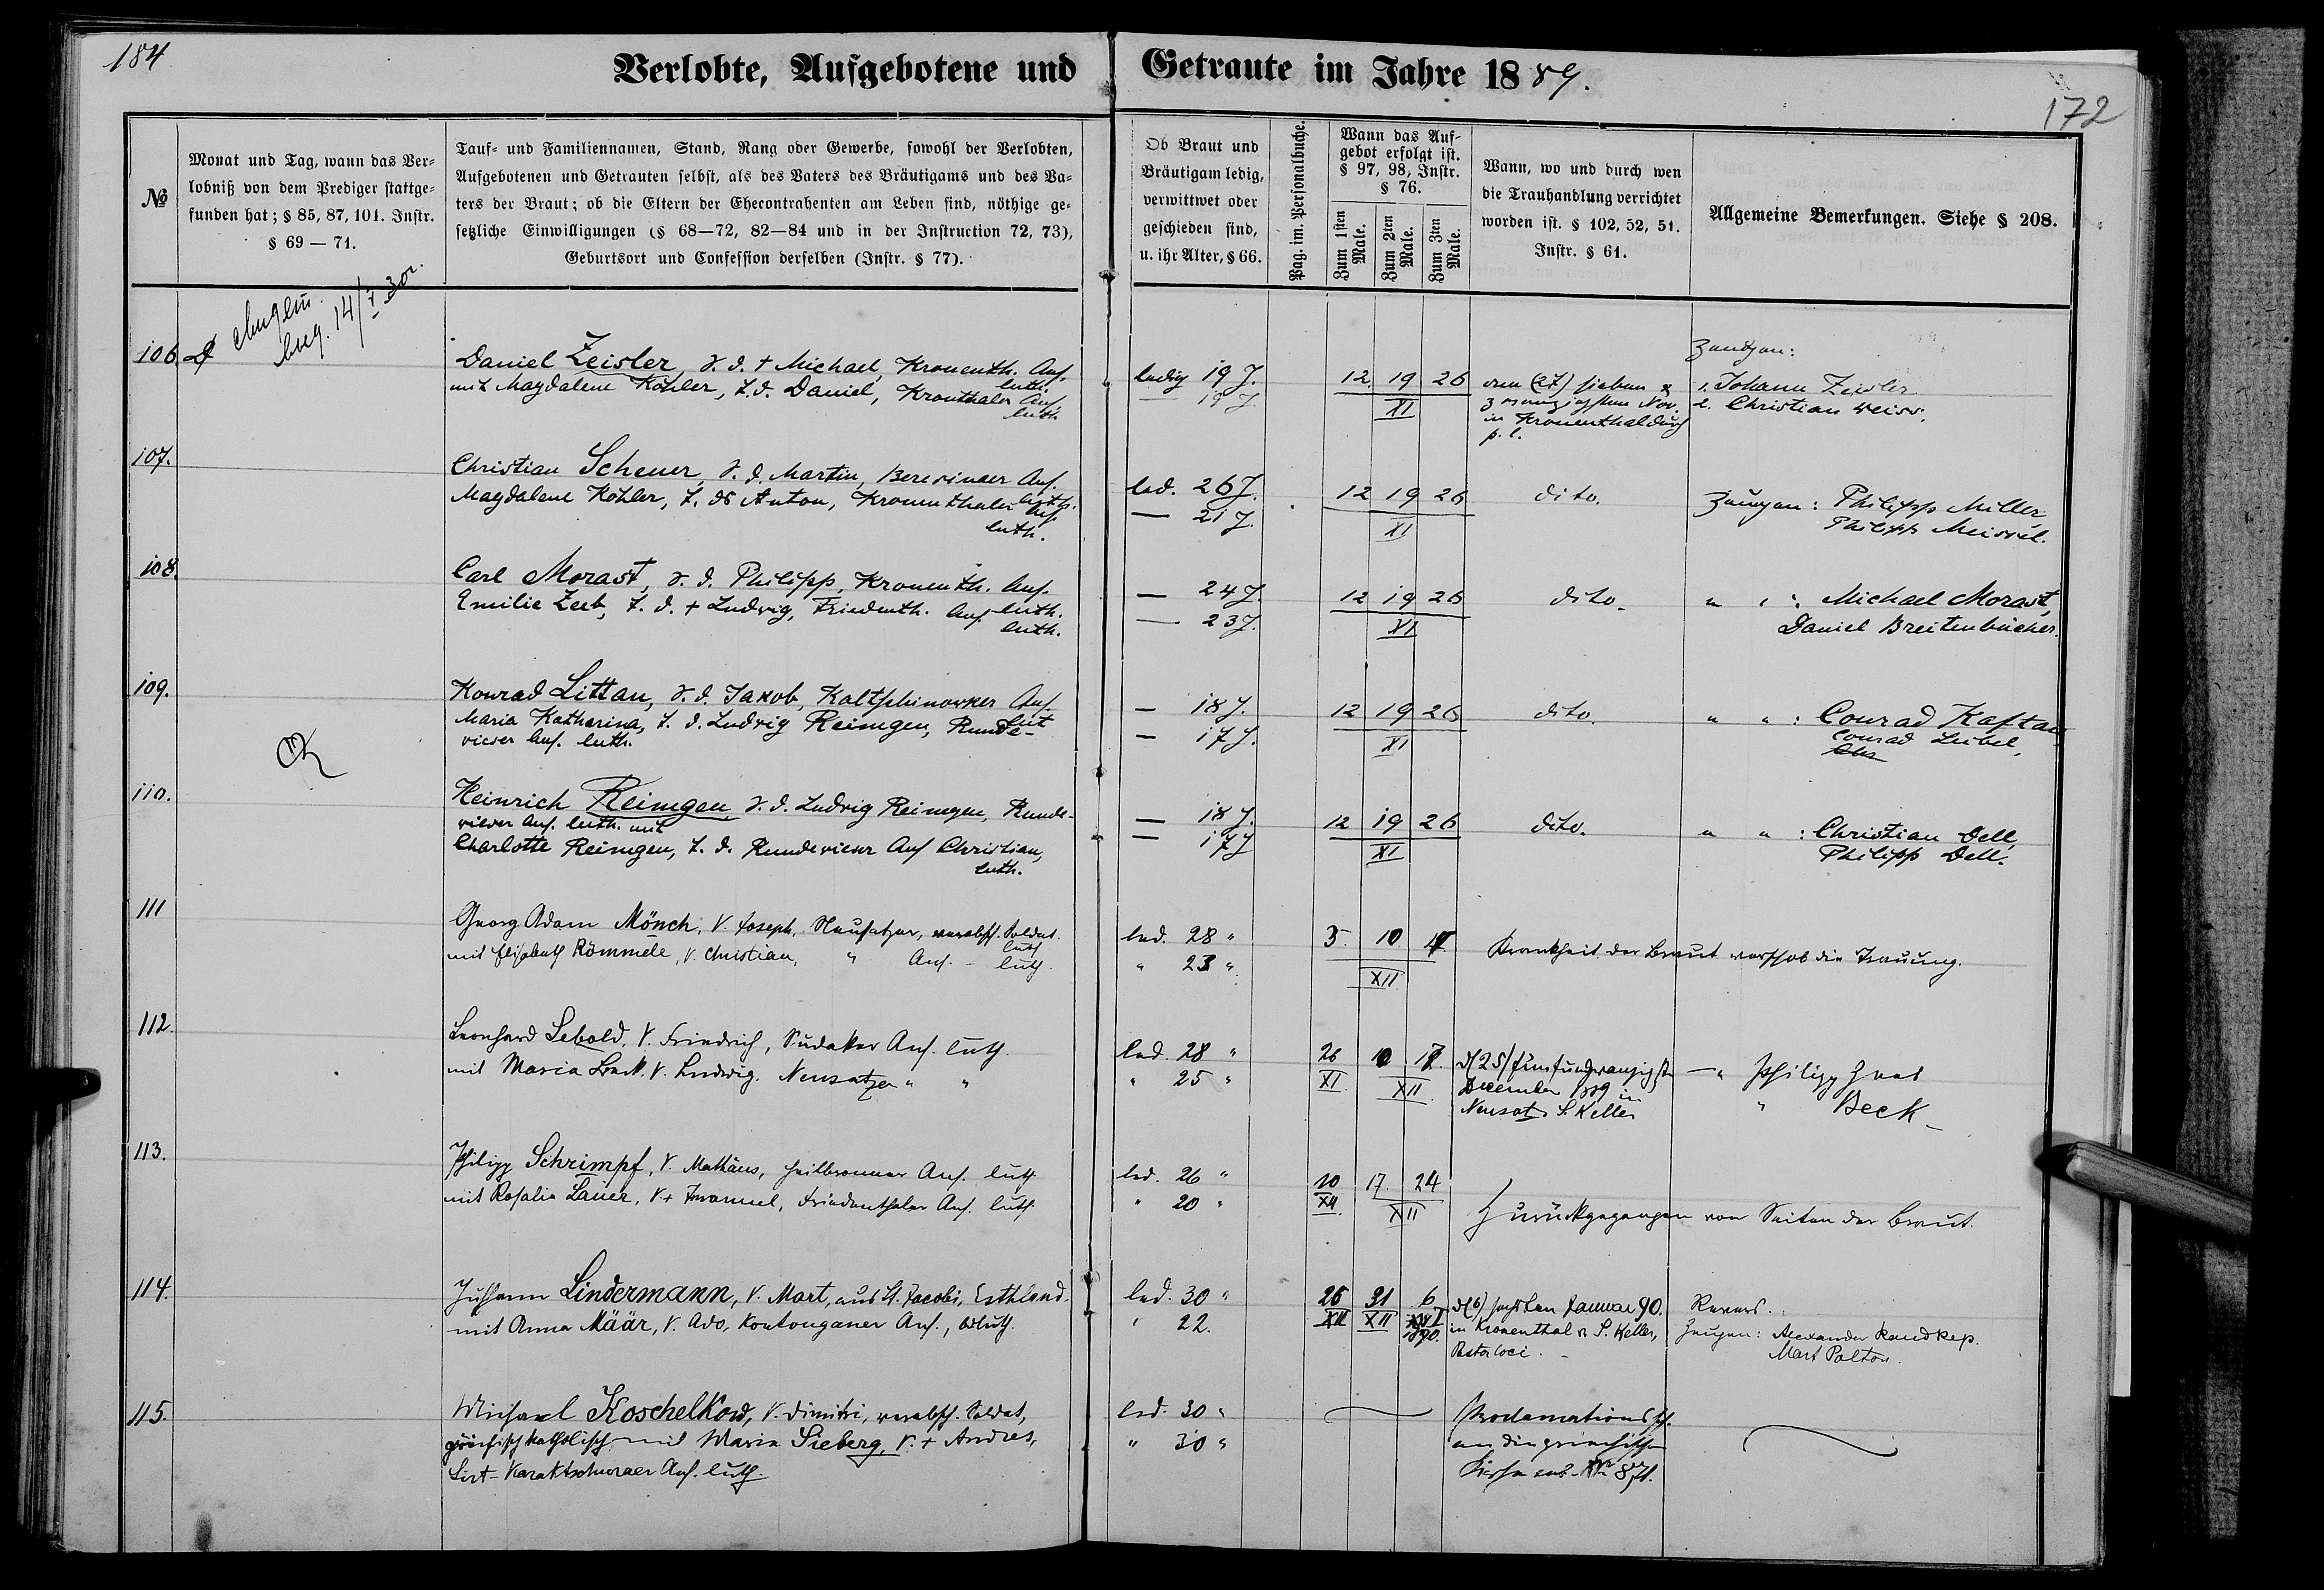 184
Verlobte, Aufgebotene und Getraute im Jahre 1889.
172
№
Monat und Tag, wann das Ver-
lobniß von dem Prediger stattge-
funden hat; § 85, 87, 101. Instr.
§ 69 — 71.
Tauf- und Familiennamen, Stand, Rang oder Gewerbe, sowohl der Verlobten,
Aufgebotenen und Getrauten selbst, als des Vaters des Bräutigams und des Va-
ters der Braut; ob die Eltern der Ehecontrahenten am Leben sind, nöthige ge-
setzliche Einwilligungen (§ 68—72, 82—84 und in der Instruction 72, 73),
Geburtsort und Confession derselben (Instr. § 77).
Ob Braut und
Bräutigam ledig,
verwittwet oder
geschieden sind,
u. ihr Alter, § 66.
Pag. im. Personalbuche.
Wann das Auf-
gebot erfolgt ist.
§ 97, 98, Instr.
§ 76.
Zum 1sten
Male.
Zum 2ten
Male.
Zum 3ten
Male.
Wann, wo und durch wen
die Trauhandlung verrichtet
worden ist. § 102, 52, 51.
Instr. § 61.
Allgemeine Bemerkungen. Siehe § 208.
106.
Daniel Zeisler, S. d. + Michael, Kronenth. Ans.
luth.
mit Magdalene Köhler, T. d. Daniel, Kronthaler Ans.
luth.
ledig 19 J.
— 19 J.
12. 19 26
XI
den (27) sieben &
zwanzigsten Nov.
in Kronenthal durch
p. l.
Zeugen:
1. Johann Zeisler
2. Christian Weiss.
107.
Christian Scheuer, S. d. Martin, Beresinaer Ans.
luth.
Magdalene Köhler, T. ds Anton, Kronenthaler Ans.
luth.
led. 26 J.
— 21 J.
12 19 26
XI
dito.
Zeugen: Philipp Miller
Philipp Meissel.
108.
Carl Morast, S. d. Philipp, Kronenth. Ans.
luth.
Emilie Zeeb, T. d. + Ludwig, Friedenth. Ans.
luth.
— 24 J.
— 23 J.
12 19 26
XI
dito.
" " : Michael Morast,
Daniel Breitenbücher.
109.
Konrad Littau, S. d. Jakob, Kaltschinowker Ans.
lut
Maria Katharina, T. d. Ludwig Reimgen, Runde-
wieser Ans. luth.
— 18 J.
— 17 J.
12 19 26
XI
dito.
" " : Conrad Kaftan
Conrad Leibel,
110.
Heinrich Reimgen, S. d. Ludwig Reimgen, Runde-
wieser Ans. luth. mit
Charlotte Reimgen, T. d. Rundewieser Ans Christian,
luth.
— 18 J.
— 17 J
12 19 26
XI
dito.
" " : Christian Dell,
Philipp Dell.
111
Georg Adam Mönch, V. Joseph, Neusatzer, verabsch. Soldat.
luth
mit Elisabeth Römmele, V. Christian, " Ans. - luth.
led. 28 "
" 23 "
3. 10 17
XII
Krankheit der Braut verschob die Trauung.
112.
Leonhard Sebold, V. Friedrich, Sudaker Ans. luth.
mit Maria V. Ludwig. Neusatzer " "
led. 28 "
" 25 "
26 10 17.
XI XII
d (25) fünfundzwanzigsten
December 1889 in
Neusatz S. Keller
—" Philipp
" Beck
113.
Philipp Schrimpf, V. Mathäus, Heilbronner Ans. luth
mit Rosalie Lauer, V. + Immanuel, Friedenthaler Ans. luth.
led. 26 "
" 20 "
10 17. 24
XII XII
Zurückgegangen von Seiten der Braut.
114.
Juhann Lindermann, V. Mart, aus St. Jacobi, Esthland.
mit Anna Määr, V. Ado, Kontouganer Ans., luth.
led. 30 "
" 22.
26 31 6
XII XII I
1890.
d (6) sechsten Januar 90.
in Kronenthal S. Keller,
Pastor loci.
Revers.
Zeugen: Alexander Randkep.
Mart Palton.
115.
Michael Koschelkow, V. Dimitri, verabsch. Soldat,
griechisch katholisch mit Maria Sieberg, V. + Andres,
Sirt-Karaktschoraer Ans. luth.
led. 30 "
" 30 "
Proclamationssch.
an die griechische
Kirche sub № 871.